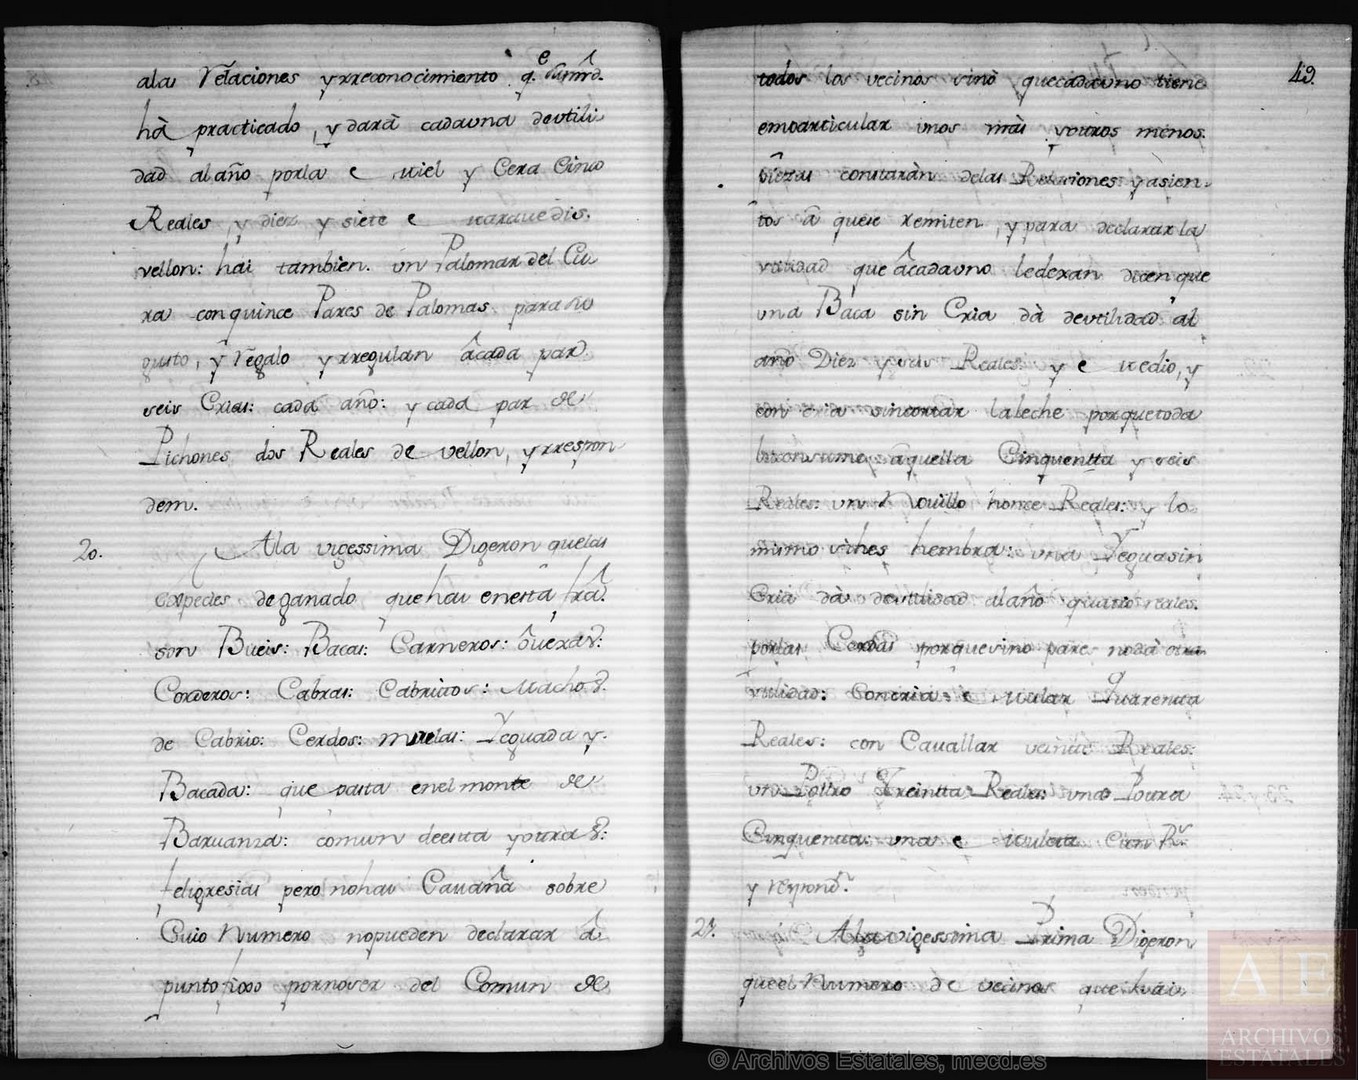 alas relaciones yrreconocimiento q.e Sumrd.
hà practicado, y darà cadauna deutili
dad alaño porla miel y Cera Cinco
Reales y diez y siete marauedis.
vellon: hai tambien. un Palomar del Cu
ra con quince Pares de Palomas para su
gusto, y regalo yrregulan âcada par
seis Crias: cada año: y cada par de
Pichones dos Reales de vellon, yrrespon
dem.
20.
Ala vigessima Digeron quelas
expecies deganado que hai enesta frâ.
son Bueis: Bacas: Carneros: ôuexas:
Corderos: Cabras: Cabritos: Machos
de Cabrio: Cerdos: mulas: Yeguada y
Bacada: que pasta enelmonte de
Baruanza: comun deesta yotras
feligresias pero nohai Cauaña sobre
Cuio Numero nopueden declarar â
punto fixo pornoser del Comun de
49.
todos los vecinos sinò quecadauno tiene
emparticular unos màs yotros menos.
vièzas constaràn delas Relaciones yasien-
tos â quese remiten, ypara declarar la
utilidad que âcadauno lederan dicen que
una Baca sin Cria dà deutilidad al
año Diez y seis Reales y medio, y
con cria sincontar laleche porquetoda
laconsume aquella Cinquentta y seis
Reales: un Nouillo honce Reales: y lo
mismo sihes hembra: una Yegua sin
Cria dà deutilidad alaño quatro reales.
porlas Cerdas porquesino pares nodà otra
utilidad: Concria mular Quarenta
Reales: con Cauallar veinte Reales:
un Pottro Treintta Reales: una Potra
Cinquenta: una muleta Cien R.s
y respond.n
21.
Ala vigessima Prima Digeron
queel Numero de vecinos que hai
© Archivos Estatales, mecd.es
AE
ARCHIVOS
ESTATALES